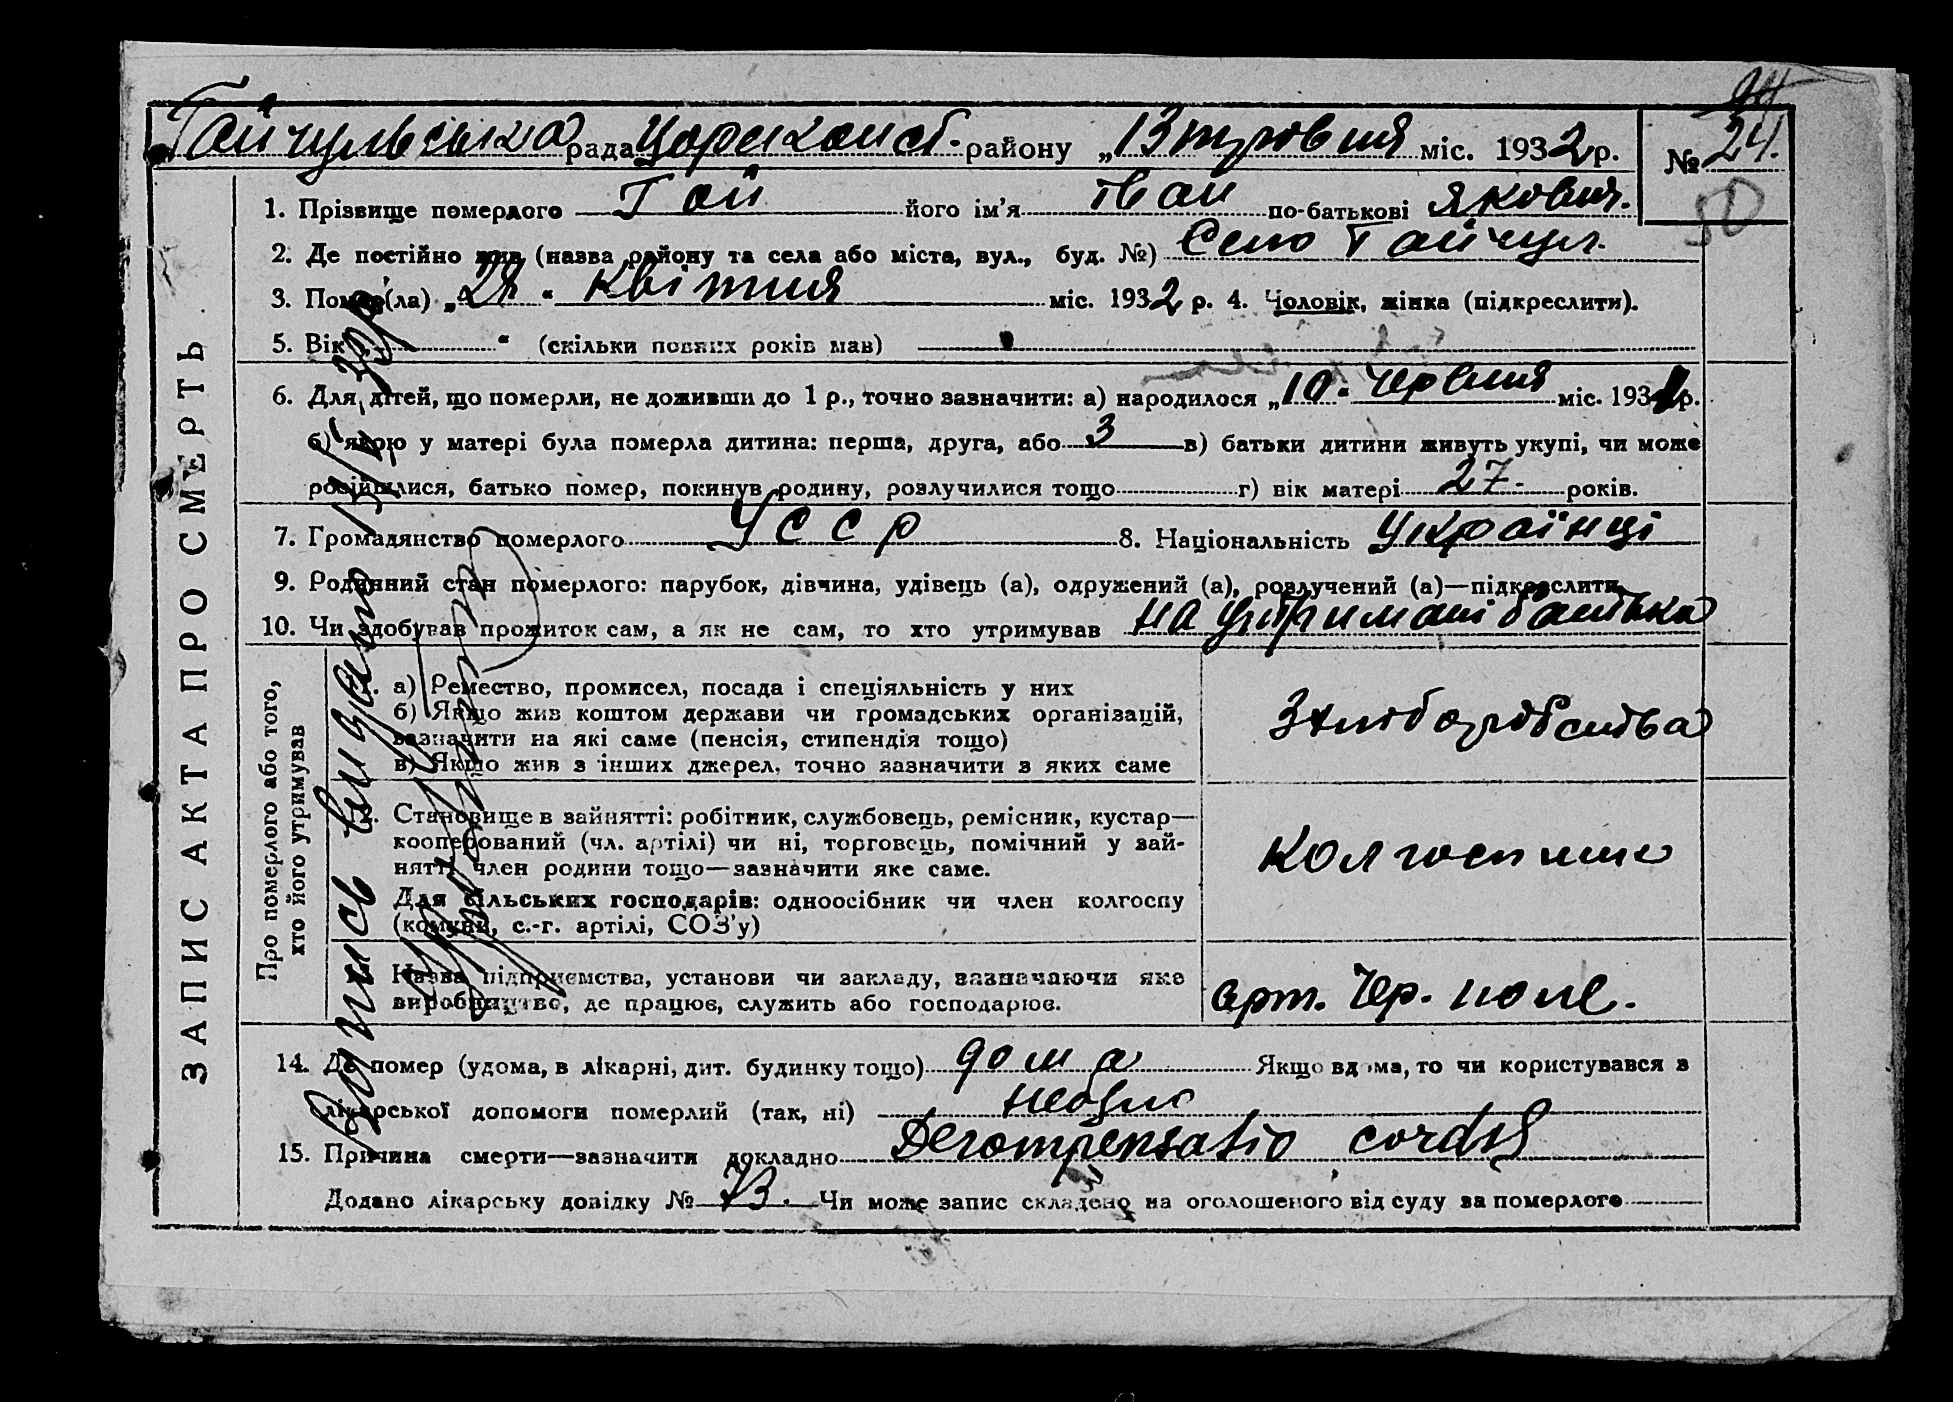 24
Гайчульська рада Царекон об. району „13 травня міс. 1932 р. № 24.
50
1. Прізвище померлого Гай його ім’я Іван по-батькові Якович.
2. Де постійно жив (назва району та села або міста, вул., буд. №) Село Гайчул.
3. Помер(ла) „28“ Квітня міс. 1932 р. 4. Чоловік, жінка (підкреслити).
5. Вік “ (скільки повних років мав)
6. Для дітей, що померли, не доживши до 1 р., точно зазначити: а) народилося „10“ червня міс. 1931 р.
б) якою у матері була померла дитина: перша, друга, або 3 в) батьки дитини живуть укупі, чи може
розійшлися, батько помер, покинув родину, розлучилися тощо г) вік матері 27 років.
7. Громадянство померлого УССР 8. Національність Українці
9. Родинний стан померлого: парубок, дівчина, удівець (а), одружений (а), розлучений (а)—підкреслити
10. Чи здобував прожиток сам, а як не сам, то хто утримував на утримані батька
ЗАПИС АКТА ПРО СМЕРТЬ
Про померлого або того,
хто його утримував
а) Ремество, промисел, посада і спеціяльність у них
б) Якщо жив коштом держави чи громадських організацій,
зазначити на які саме (пенсія, стипендія тощо)
в) Якщо жив з інших джерел, точно зазначити з яких саме
З хліборобства
Становище в зайнятті: робітник, службовець, ремісник, кустар—
кооперований (чл. артілі) чи ні, торговець, помічний у зай-
нятті член родини тощо—зазначити яке саме.
Для сільських господарів: одноосібник чи член колгоспу
(комуни, с.-г. артілі, СОЗ’у)
Колгоспник
Назва підприємства, установи чи закладу, зазначаючи яке
виробництво, де працює, служить або господарює.
арт. Чер. поле.
14. Де помер (удома, в лікарні, дит. будинку тощо) дома Якщо вдома, то чи користувався з
лікарської допомоги померлий (так, ні)
15. Причина смерти—зазначити докладно Decompensatio cordis
Додано лікарську довідку № 73. Чи може запис складено на оголошеного від суду за померлого